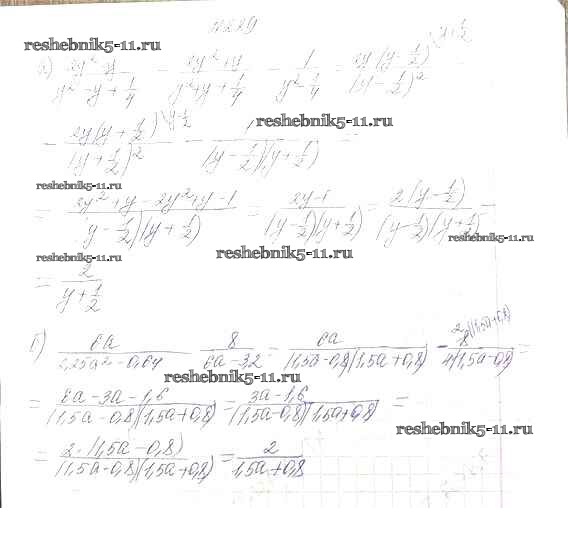 reshebnik5-11.ru
а) (2y² - y)/(y² - y + 1/4) - (2y² + y)/(y² + y + 1/4) - 1/(y² - 1/4) = 2y(y - 1/2)/(y - 1/2)²
reshebnik5-11.ru
- 2y(y + 1/2)/(y + 1/2)² - /(y - 1/2)(y + 1/2)
reshebnik5-11.ru
= (2y² + y - 2y² + y - 1)/(y - 1/2)(y + 1/2) = (2y - 1)/(y - 1/2)(y + 1/2) = 2(y - 1/2)/(y - 1/2)(y + 1/2)
reshebnik5-11.ru
reshebnik5-11.ru
reshebnik5-11.ru
= 2/(y + 1/2)
б) 6a/(2,25a² - 0,64) - 8/(6a - 3,2) = 6a/(1,5a - 0,8)(1,5a + 0,8) - 8/4(1,5a - 0,8) =
reshebnik5-11.ru
= (6a - 3a - 1,6)/(1,5a - 0,8)(1,5a + 0,8) = (3a - 1,6)/(1,5a - 0,8)(1,5a + 0,8) =
reshebnik5-11.ru
= 2·(1,5a - 0,8)/(1,5a - 0,8)(1,5a + 0,8) = 2/(1,5a + 0,8)